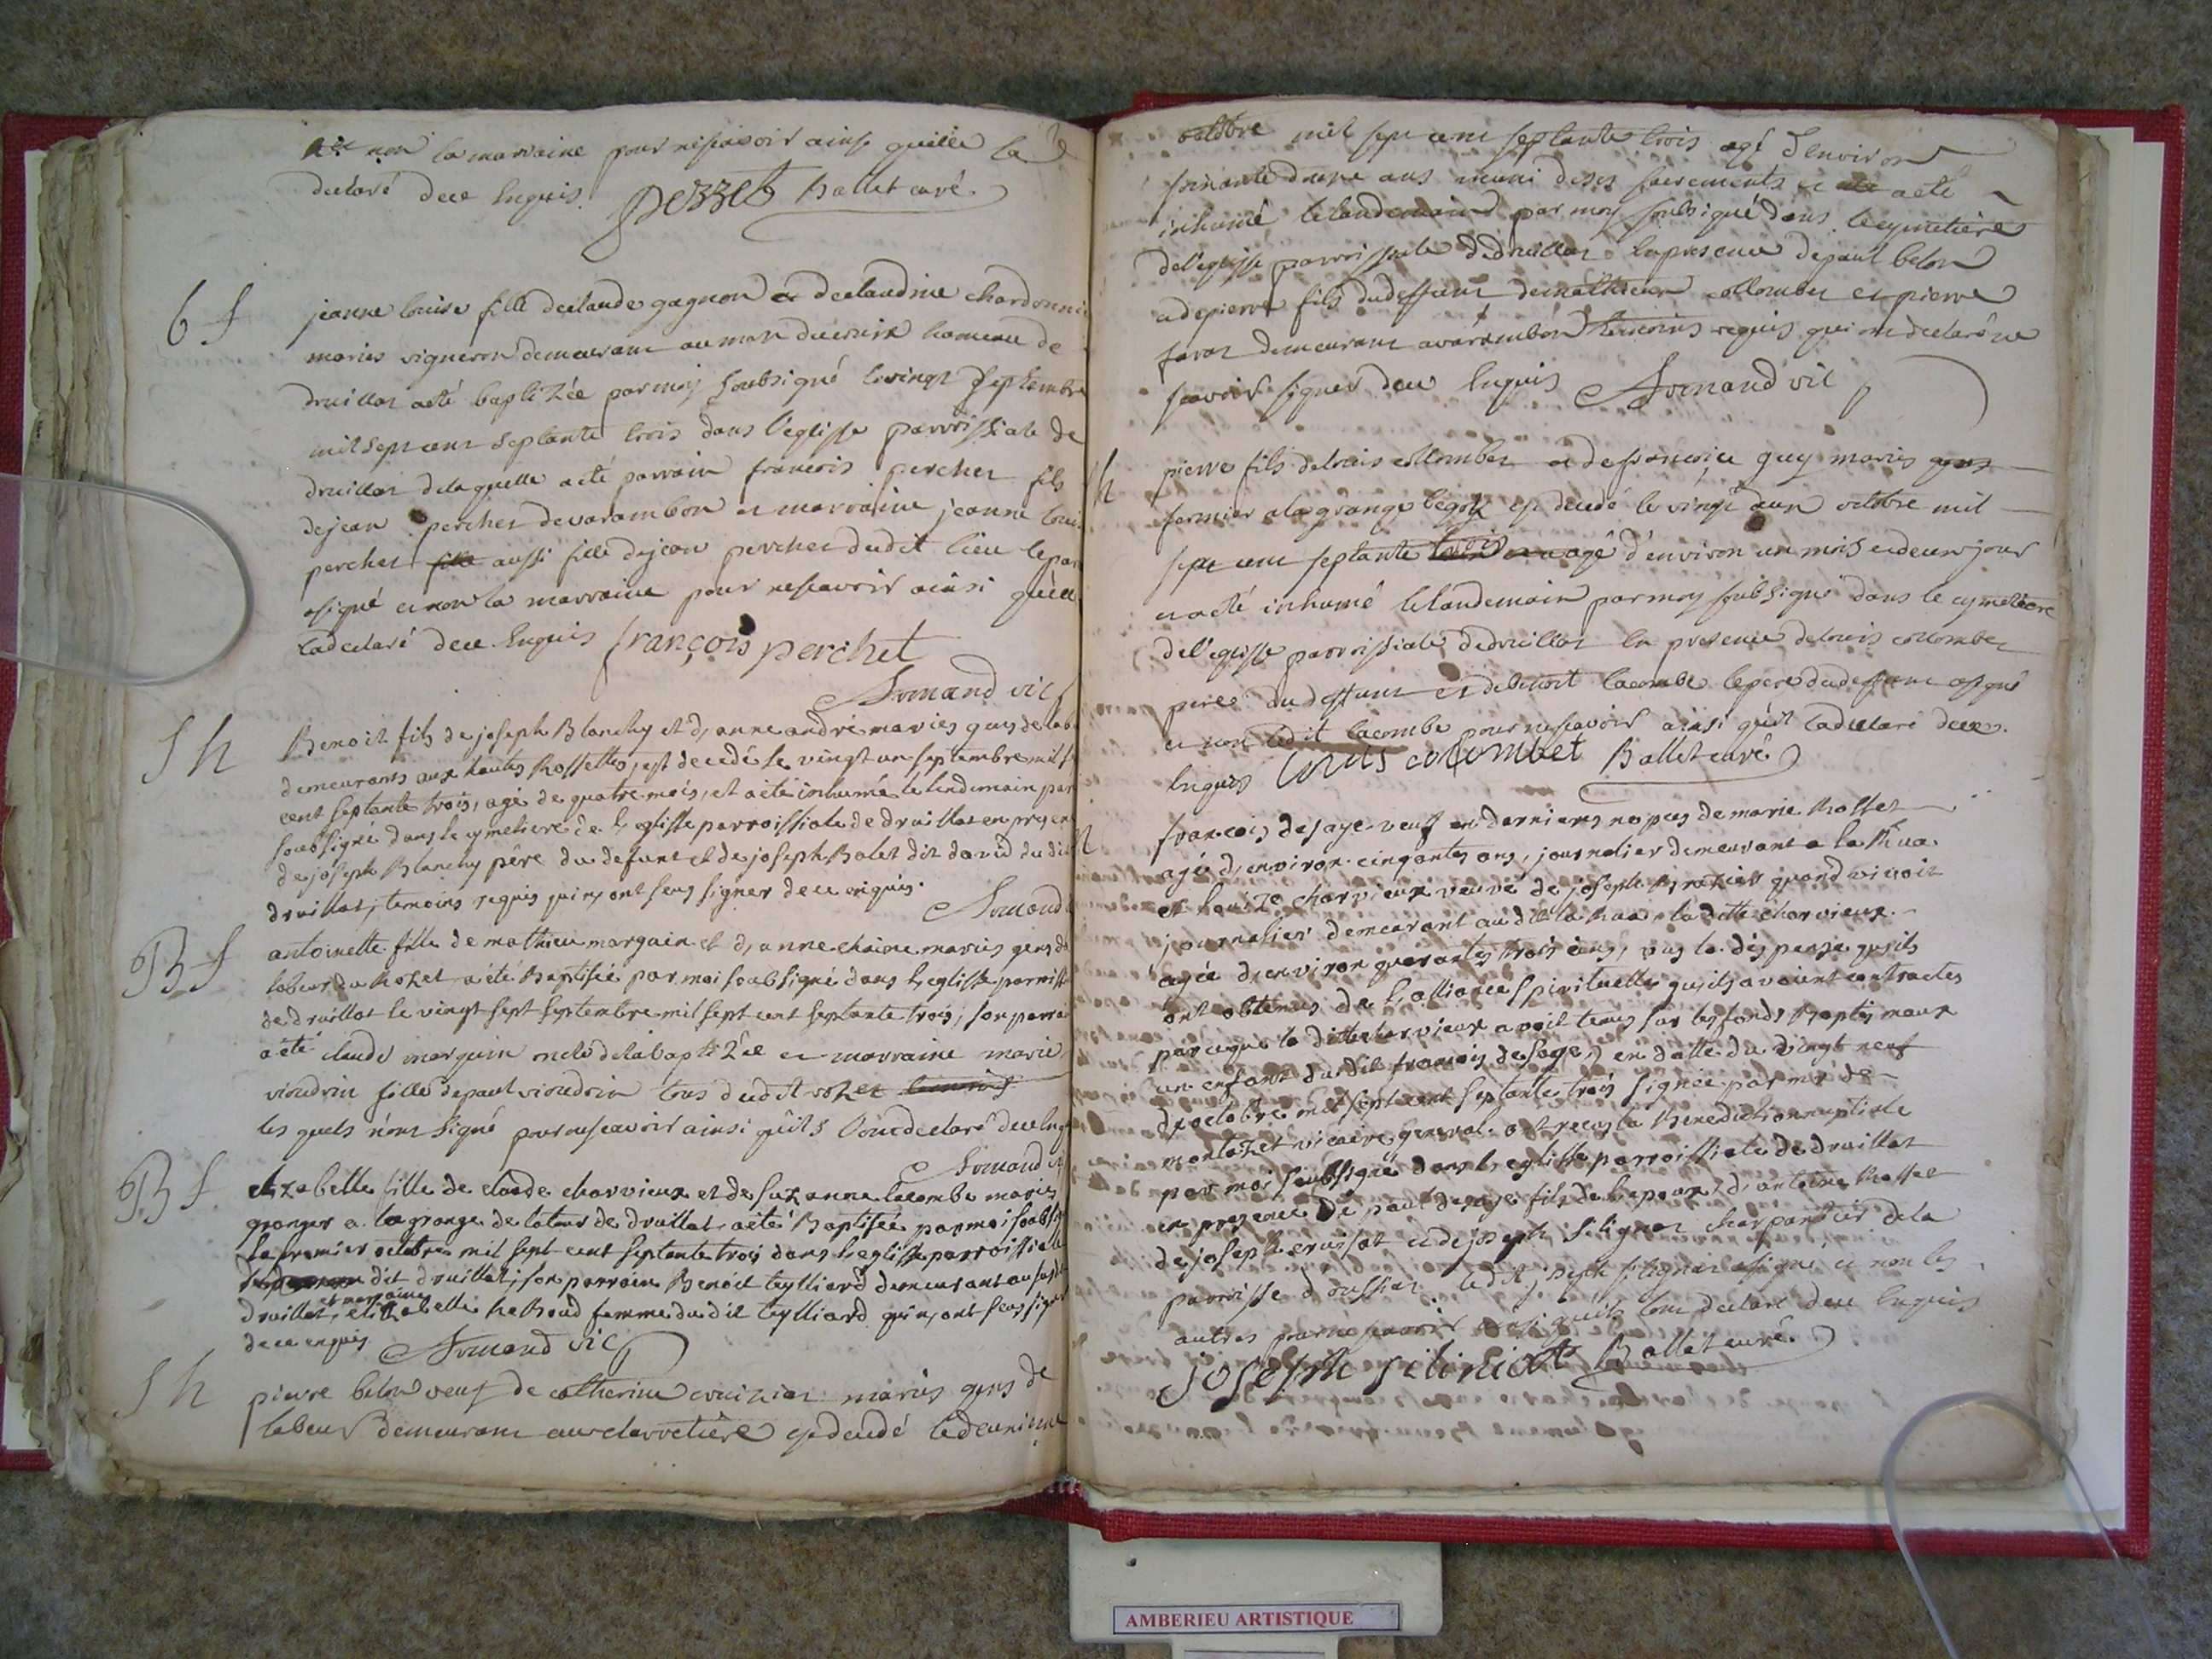 non la marraine pour ne scavoir ainsi quelle la
declaré de ce enquis. pezzet Ballet curé
b f
jeanne louise fille declaude gagnon et declaudine chardonni
mariés vigneron demeurant au hameau de
druillat a eté baptizée par moy soubsigné le vingt septembre
mil sept cent septante trois dans l'eglisse parroissiale de
druillat de laquelle a eté parrain francois perchet fils
de jean perchet devarambon et marraine jeanne loui
perchet aussi fille dejean perchet dudit lieu le par
a signé et non la marraine pour ne scavoir ainsi quel
la declaré de ce enquis françois perchet
Armand vic
S h
Benoit fils de joseph Blanchy et d, anne andré mariés gens de lab
demeurants aux hautes Rossettes, est decedé le vingt un septembre mil s
cent septante trois, agé de quatre mois, et a eté inhumé le lendemain par
soubsigné dans le cymetiere de l, eglisse parroissiale de druillat en presen
de joseph Blanchy père du defunt et de joseph Balet dit david du dit
druillat, temoins requis qui n, ont sçus signer de ce enquis.
Armand
B f
antoinette fille de mathieu marguin et d, anne chaine mariés gens de
labeur du Rozet a été Baptisée par moi soubsigné dans l, eglisse parroiss
de druillat le vingt sept septembre mil sept cent septante trois, son parra
a été claude marguin oncle de la baptizée et marraine marie
vioudrin fille de paul vioudrin tous dudit rozet
les quels n'ont signé pour ne scavoir ainsi qu'ils l'ont declaré de ce enq
Armand v
B f
elizabelle fille de claude charvieux et de suzanne lacombe mariés
granger a la grange de latour de druillat a eté Baptisée par moi soubsi
le premier octobre mil sept cent septante trois dans l, eglisse parroissiale
dit druillat, son parrain Benoit teylliard demeurant au
et marraine
druillat, elizabelle femme du dit teylliard qui n, ont sçus signer
de ce enquis Armand vic
S h
pierre belon veuf de catherine mariés gens de
labeur demeurant decedé le deuxieme
octobre mil sept cent septante trois agé d'environ
ans muni de ses sacrements et a eté
inhumé le landemain par moy soubsigné dans le cymetiere
de l'eglisse parroissiale de druillat en presence de paul belon
fils du deffunt de mathieu collombet et pierre
favar demeurant a varambon temoins requis qui ont declaré ne
scavoir signer de ce enquis Armand vic
h
pierre fils de louis collombet et de francoise guy mariés
fermier a la grange est decedé le vingt deux octobre mil
sept cent septante trois agé d'environ un mois et deux jour
et a eté inhumé le landemain par moy soubsigné dans le cymetiere
de l'eglisse parroissiale de druillat en presence de louis collombet
pere du deffunt et de benoit lacombe le pere du deffunt a signé
et non ledit lacombe pour ne scavoir ainsi qu'il la declaré de ce
enquis louis colombet Ballet curé
francois desaye veuf en derniers nopces de marie Rosset
agé d, environ cinquantes ans, journalier demeurant a la Rua
et louize charvieux veuve de joseph Brazier quand vivoit
journalier demeurant au dit la Rua, la ditte charvieux
agée d, environ quarantes trois ans, vus la dispense qu,ils
ont obtenus de l, alliance spirituelle qu,ils avoient contractés
parceque la ditte charvieux avoit tenus sur les fonds Baptismaux
un enfant du dit francois desaye, en datte du vingt neuf
d, octobre mil sept cent septante trois signée par mr de
montazet vicaire general ont reçus la Benediction nuptiale
par moi soubsigné dans l, eglisse parroissiale de druillat
en presence de paul desaye fils de l, epoux, d, antoine Rosset
de joseph cruisat et de joseph silignat charpantier de la
parroisse d'oussiat. ledit joseph silignat a signé et non les
autres pour ne scavoir ainsi qu'ils l'ont declaré de ce enquis
joseph siliniat Ballet curé
AMBERIEU ARTISTIQUE